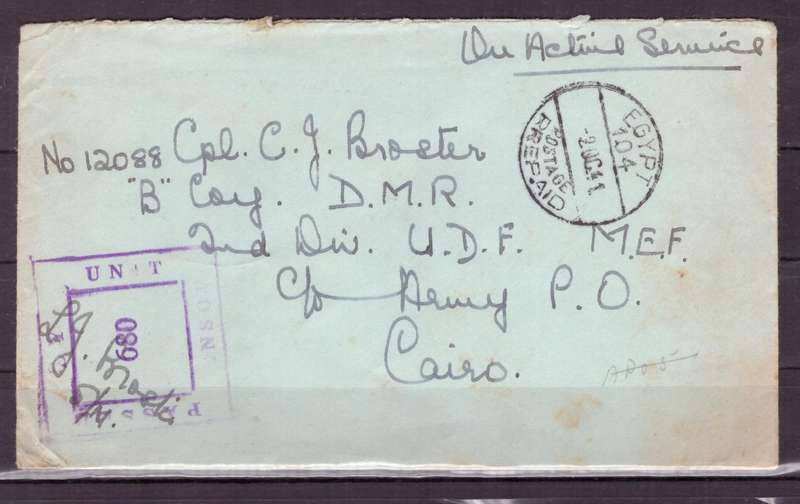 On Active Service
EGYPT
104
POSTAGE
PREPAID
No 12088 Cpl. C. J. Broster
"B" Coy. D. M. R.
2nd Div. U. D. F. M. E. F.
c/o Army P. O.
Cairo.
UN T
680
PASS
APO 5